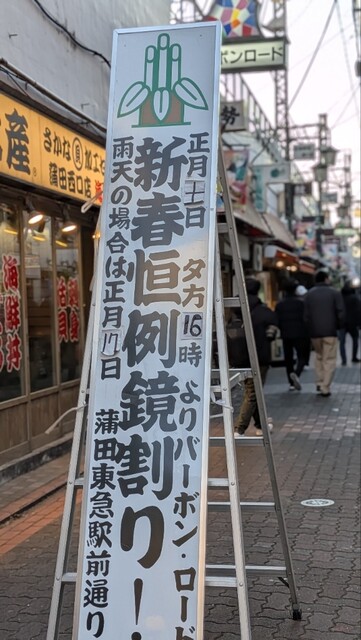 正月十一日 夕方16時よりバーボン・ロード
新春恒例鏡割り!
雨天の場合は正月17日 蒲田東急駅前通り
ボンロード
産
さかな
加工セ
蒲田西口店
海鮮